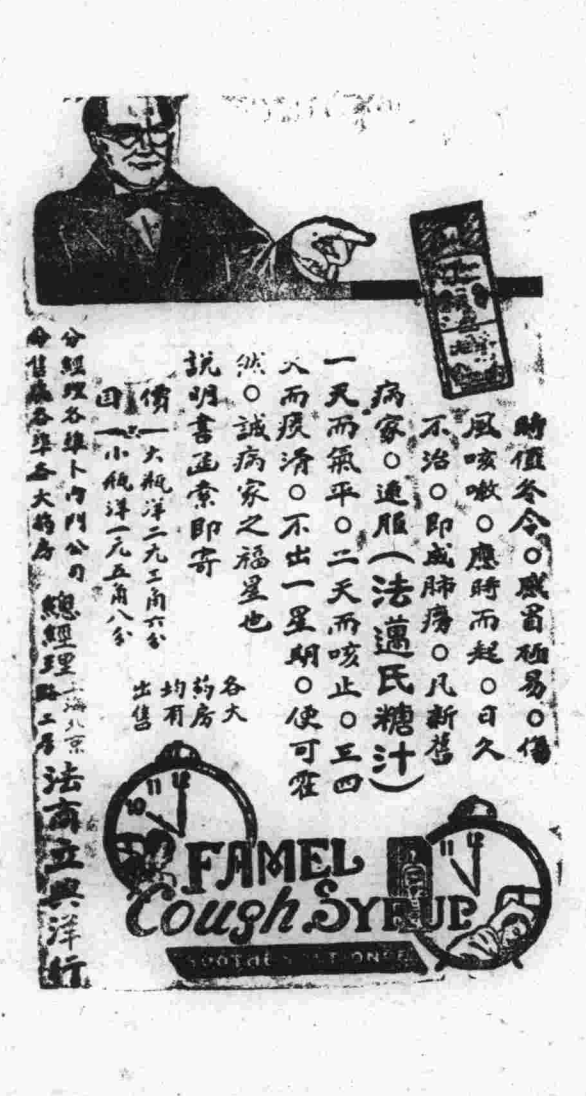 時值冬令○感冒極易○傷
風咳嗽○應時而起○日久
不治○即成肺癆○凡新舊
病家○速服（法邁氏糖汁）
一天而氣平○二天而咳止○三四
天而痰清○不出一星期○便可霍
然○誠病家之福星也
說明書函索即寄
價 大瓶洋二元二角六分
目 小瓶洋一元五角八分
各大
药房
均有
出售
分經理各埠卜內門公司
分售處各埠各大药房
總經理 上海北京路二号 法商立興洋行
12
11
10
FAMEL
Cough SYRUP
SOOTHES AT ONCE
12
11